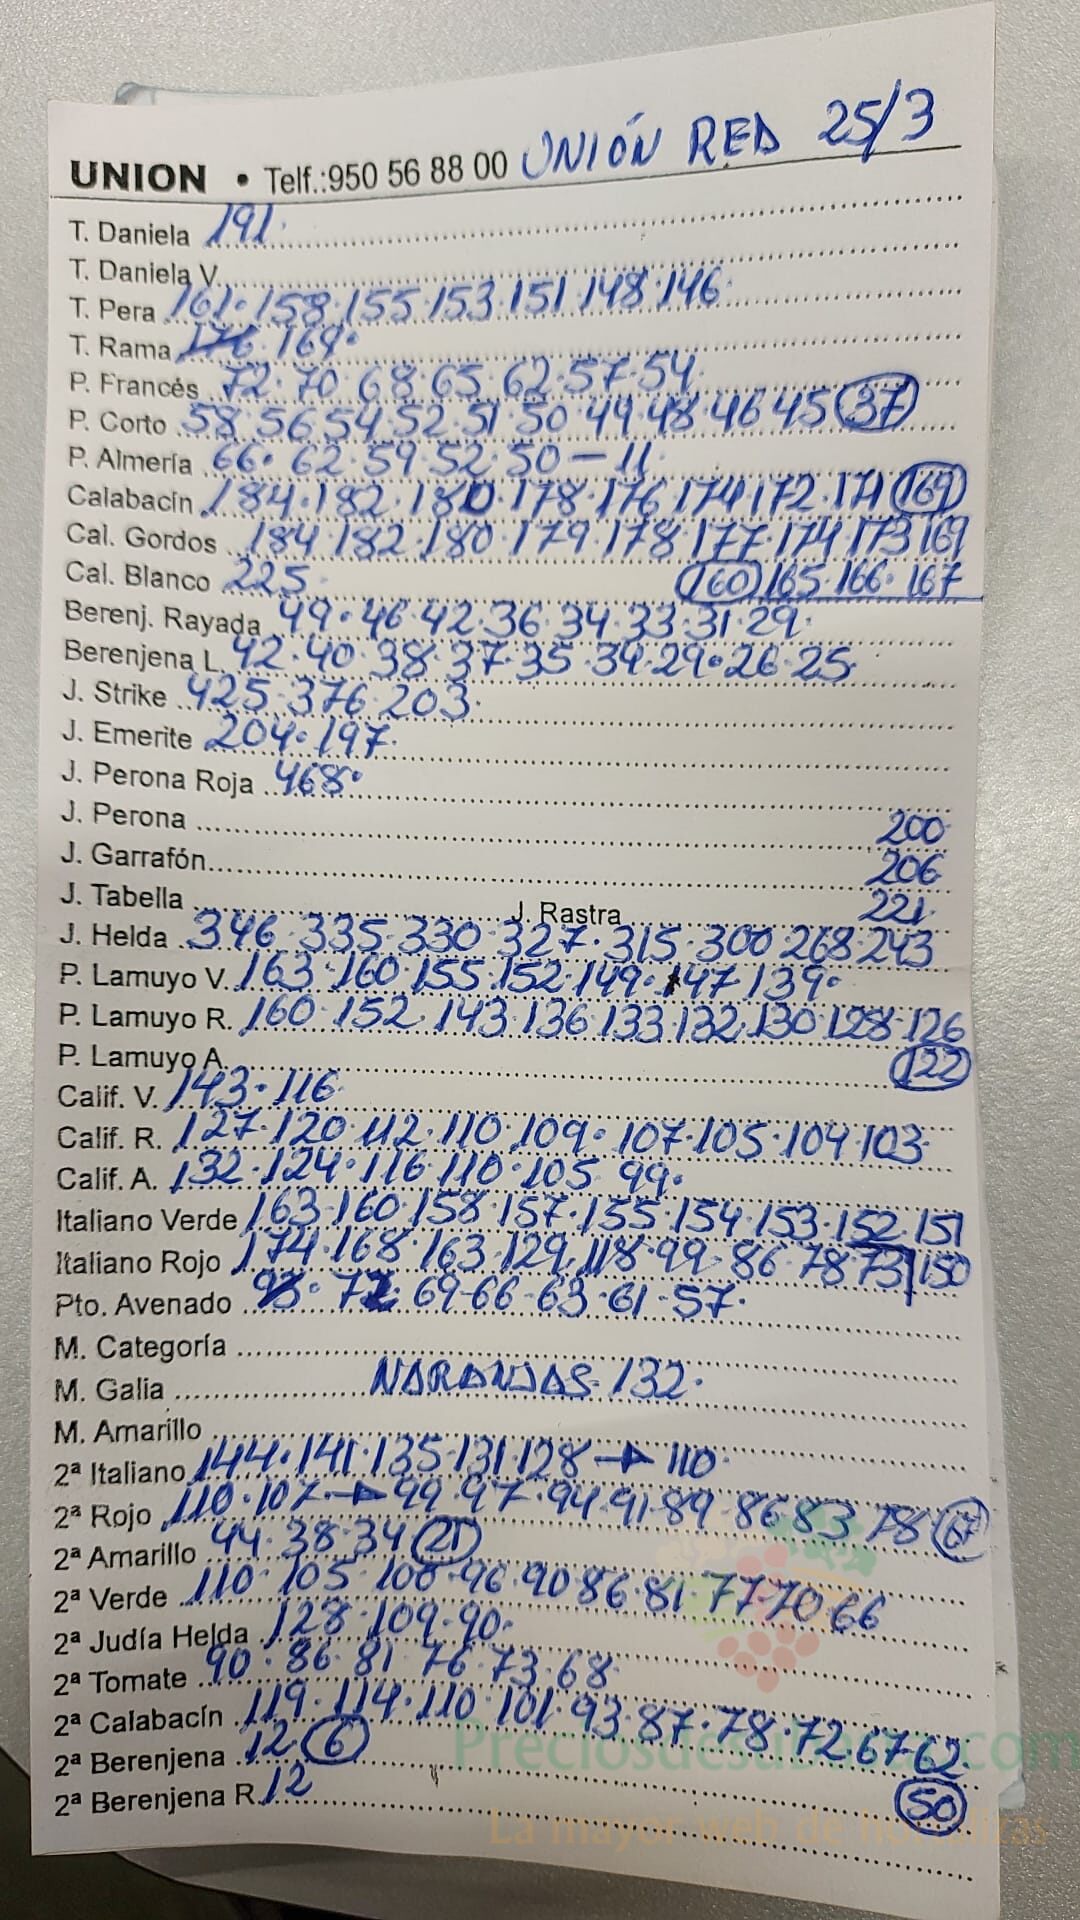 UNION • Telf.:950 56 88 00 UNIÓN RED 25/3
T. Daniela 191.
T. Daniela V.
T. Pera 161. 158. 155. 153. 151. 148. 146
T. Rama 176 169.
P. Francés 72. 70. 68. 65. 62. 57. 54
P. Corto 58. 56 54. 52. 51. 50. 49. 48. 46 45 37
P. Almería 66. 62. 59. 52. 50 - 11.
Calabacín 184. 182. 180. 178. 176. 174. 172. 171 169
Cal. Gordos 184. 182. 180. 179. 178. 177. 174. 173 169
Cal. Blanco 225. 160 165. 166. 167
Berenj. Rayada 49. 46. 42. 36. 34. 33. 31. 29.
Berenjena L. 42. 40. 38. 37. 35. 34. 29. 26. 25.
J. Strike 425. 376. 203.
J. Emerite 204. 197.
J. Perona Roja 468.
J. Perona 200
J. Garrafón 206
J. Tabella J. Rastra 221.
J. Helda 346. 335. 330. 327. 315. 300 268. 243
P. Lamuyo V. 163. 160. 155. 152. 149. 147. 139.
P. Lamuyo R. 160. 152. 143. 136. 133. 132. 130. 128. 126
P. Lamuyo A. 122
Calif. V. 143. 116.
Calif. R. 127. 120. 112. 110. 109. 107. 105. 104 103.
Calif. A. 132. 124. 116. 110. 105. 99.
Italiano Verde 163. 160. 158. 157. 155. 154. 153. 152. 151
Italiano Rojo 174. 168. 163. 129. 118. 99. 86. 78 73 150
Pto. Avenado 72. 69-66-63. 61. 57.
M. Categoría
M. Galia NARANJAS. 132.
M. Amarillo
2ª Italiano 144. 141. 135. 131. 128 → 110.
2ª Rojo 110. 107. → 99. 97. 94. 91. 89. 86 83. 78 67
2ª Amarillo 44. 38. 34 21
2ª Verde 110. 105. 100. 96. 90 86. 81. 77-70 66
2ª Judía Helda 128. 109. 90.
2ª Tomate 90. 86. 81. 76. 73. 68.
2ª Calabacín 119. 114. 110. 101. 93. 87. 78. 72 67 62
2ª Berenjena 12 6
2ª Berenjena R. 12 50
Preciosdesubasta.com
La mayor web de hortalizas